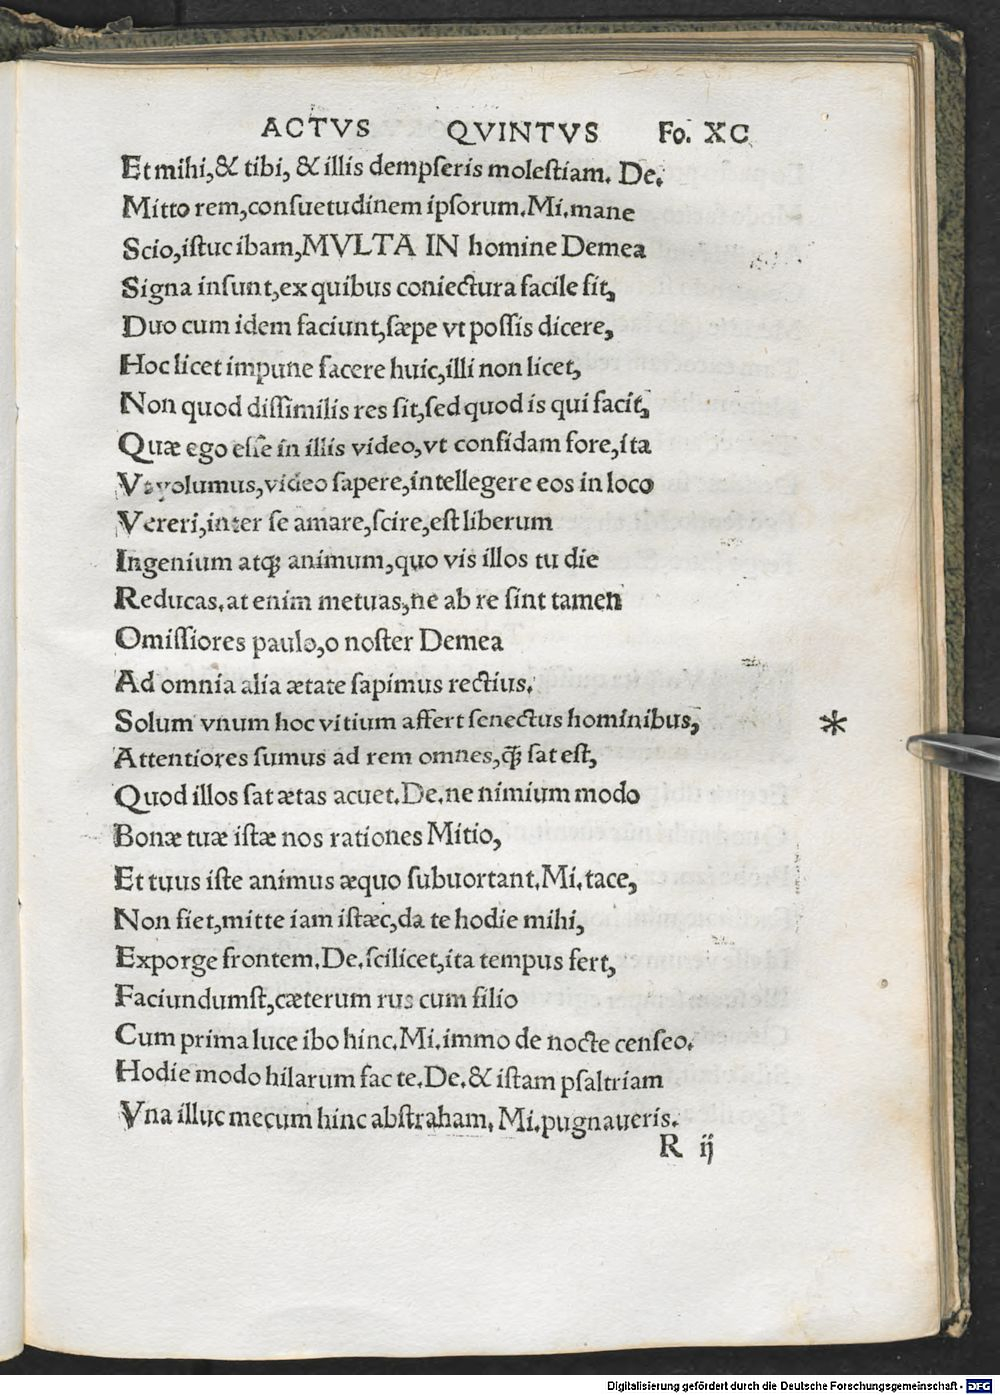 ACTVS QVINTVS Fo. XC
Et mihi,& tibi, & illis dempſeris moleſtiam. De.
Mitto rem,conſuetudinem ipſorum.Mi.mane
Scio,iſtuc ibam,MVLTA IN homine Demea
Signa inſunt,ex quibus coniectura facile ſit,
Duo cum idem faciunt,ſæpe vt poſſis dicere,
Hoc licet impune facere huic,illi non licet,
Non quod diſſimilis res ſit,ſed quod is qui facit,
Quæ ego eſſe in illis video,vt confidam fore,ita
Vt volumus,video ſapere,intellegere eos in loco
Vereri,inter ſe amare,ſcire,eſt liberum
Ingenium atqꝫ animum,quo vis illos tu die
Reducas.at enim metuas,ne ab re ſint tamen
Omiſſiores paulo,o noſter Demea
Ad omnia alia ætate ſapimus rectius.
Solum vnum hoc vitium affert ſenectus hominibus, *
Attentiores ſumus ad rem omnes,ꝗ̃ ſat eſt,
Quod illos ſat ætas acuet.De.ne nimium modo
Bonæ tuæ iſtæ nos rationes Mitio,
Et tuus iſte animus æquo ſubuortant.Mi.tace,
Non fiet,mitte iam iſtæc,da te hodie mihi,
Exporge frontem.De.ſcilicet,ita tempus fert,
Faciundumſt,cæterum rus cum filio
Cum prima luce ibo hinc.Mi.immo de nocte cenſeo.
Hodie modo hilarum fac te.De.& iſtam pſaltriam
Vna illuc mecum hinc abſtraham. Mi.pugnaueris.
R ij
Digitalisierung gefördert durch die Deutsche Forschungsgemeinschaft - DFG